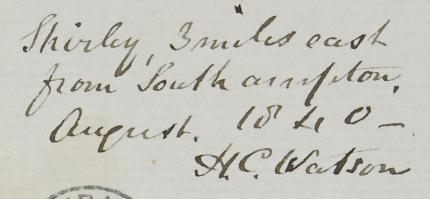 Shirley, 3 miles east
from Southampton,
August. 1840 -
H.C. Watson